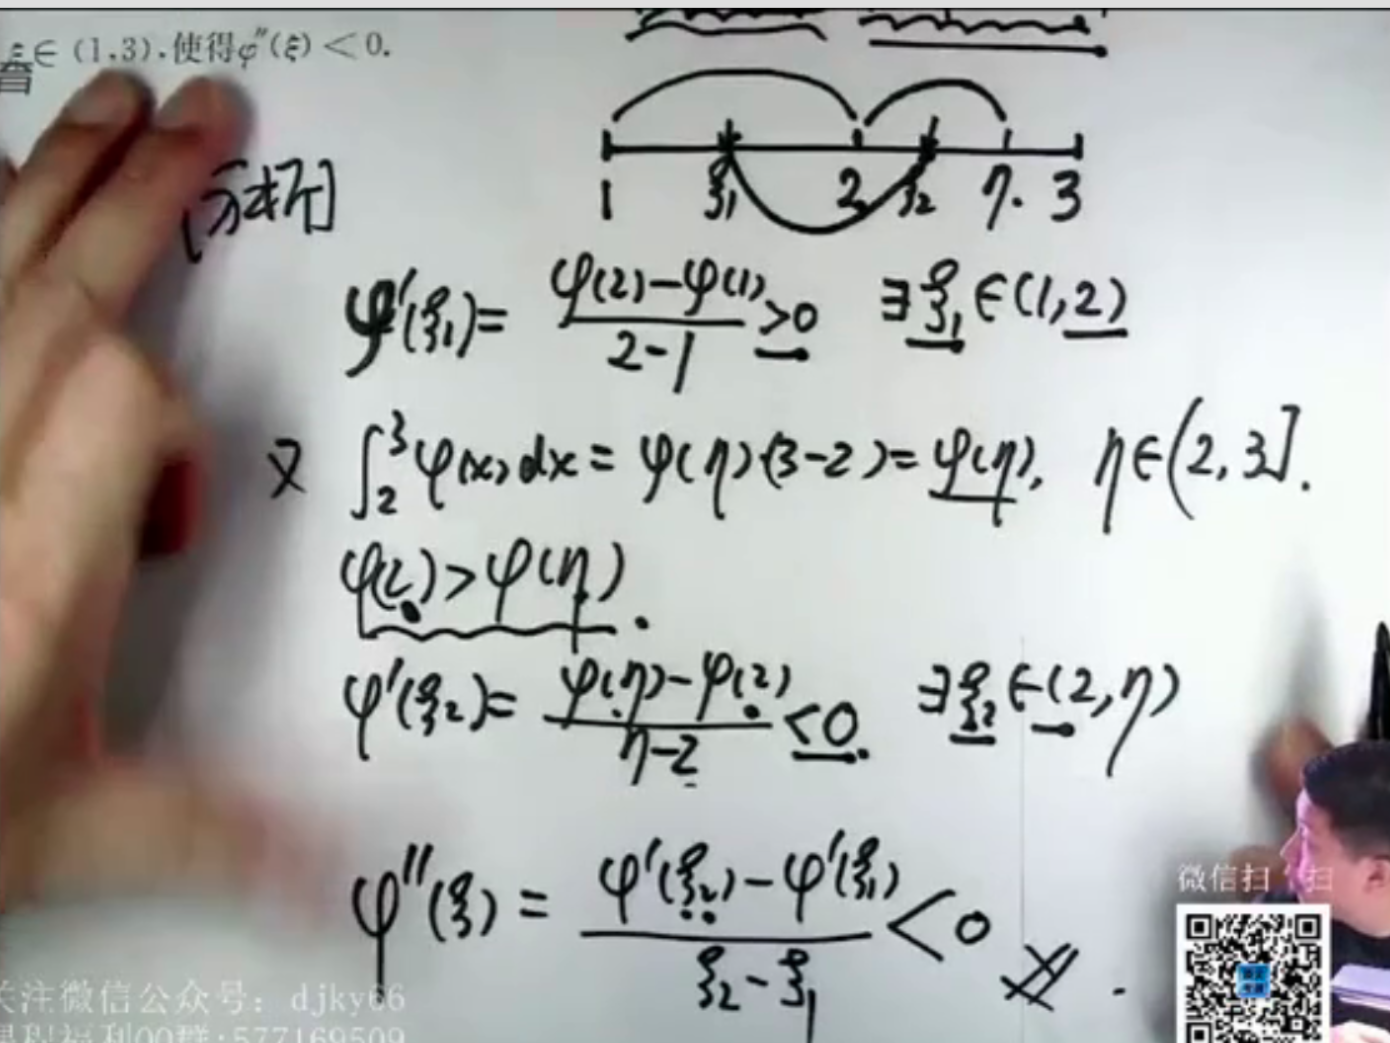 ξ∈(1,3),使得φ″(ξ)<0.
1 ξ₁ 2 ξ₂ η. 3
[分析]
φ′(ξ₁)= φ(2)-φ(1)/2-1 >0 ∃ξ₁∈(1,2)
又 ∫₂³φ(x)dx=φ(η)·(3-2)=φ(η), η∈(2,3].
φ(2)>φ(η).
φ′(ξ₂)= φ(η)-φ(2)/η-2 <0. ∃ξ₂∈(2,η)
φ″(ξ)= φ′(ξ₂)-φ′(ξ₁)/ξ₂-ξ₁ <0
微信扫一扫
关注微信公众号: djky66
课程福利QQ群:577169509